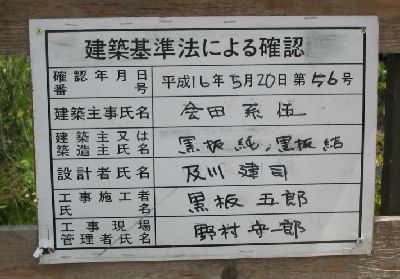 建築基準法による確認
確認年月日
番号
平成16年5月20日 第56号
建築主事氏名
会田 系伍
建築主又は
築造主氏名
黒板 純、黒板 結
設計者氏名
及川 建司
工事施工者
氏名
黒板 五郎
工事現場
管理者氏名
野村 守一郎